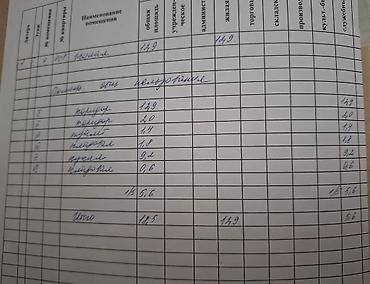 Литера Этаж № помещения № квартиры Наименование помещения общая площадь учрежден-ческое админист жилая торгов складск произво культ.-бы служебн
жилая 12,9 12,9
общ пользования
1 коридор 12,9 12,9
коридор 2,0 2,0
туалет 1,4 1,4
кладовая 1,8 1,8
кухня 9,2 9,2
кладовая 0,6 0,6
1/5 5,6 1/5 5,6
Итого 18,5 12,9 5,6